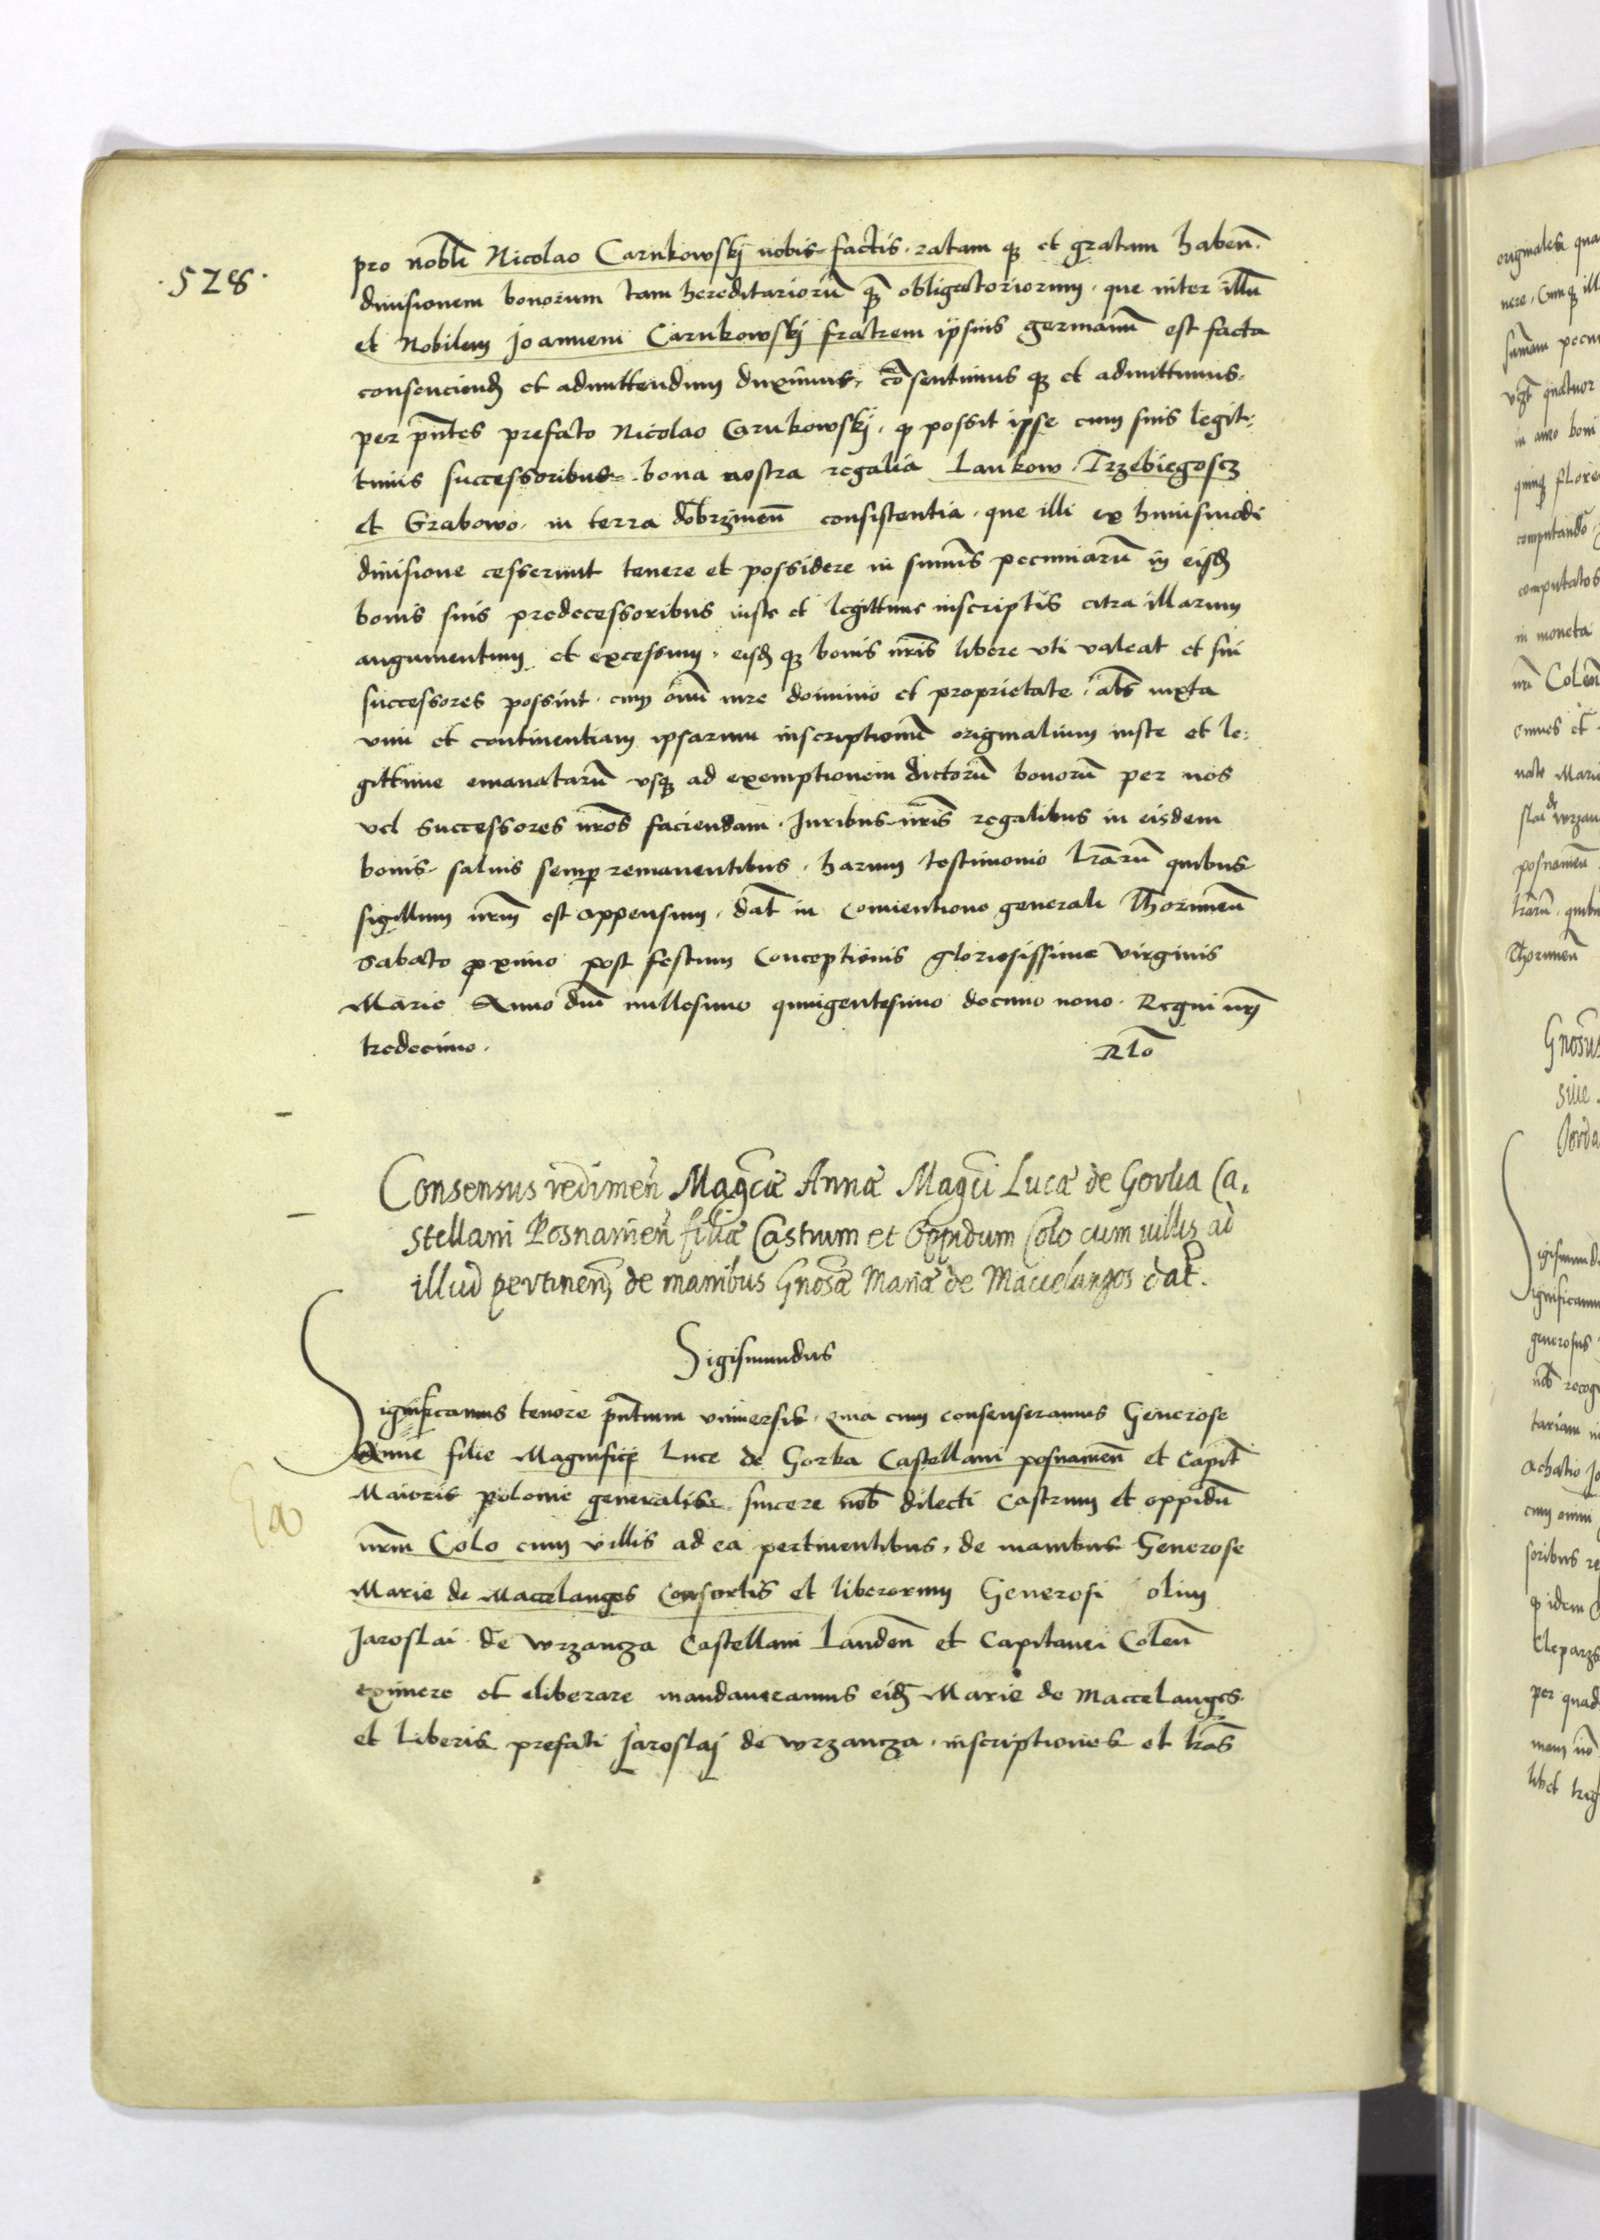 .528.
pro nobłi Nicolao Carnkowskj nobis factis. ratam qz et gratam haben̄.
diuisionem bonorum tam hereditariorū qz̄ obligatoriorum. que inter illū
et Nobilem Joannem Carnkowskj fratrem ipsius germanū est facta
consenciend̄ et admittendum duximus. cōsentimus qz et admittimus.
per pn̄tes prefato Nicolao Carnkowskj. qp possit ipse cum suis legit:
timis successoribus. bona nostra regalia Lankow. Trzebiegoscz
et Grabowo. in terra dobrzinen̄ consistentia. que illi ex huiusmodi
diuisione cesserunt tenere et possidere in sum̄is pecuniarū in eisd̄
bonis suis predecessoribus iuste et legittime inscriptis citra illarum
augumentum et excessum. eisd̄ qz bonis nr̄is libere vti valeat et sui
successores possint. cum om̄i iure dominio et proprietate. al̄s iuxta
vim et continentiam ipsarum inscriptionū originalium iuste et le:
gittime emanatarū vsqz ad exemptionem dictorū bonorū per nos
vel successores nr̄os faciendam. Juribus nr̄is regalibus in eisdem
bonis. saluis semp remanentibus. harum testimonio lr̄arū quibus
sigillum nr̄m est appensum. dat̄ in conuentione generali Thorunien̄
Sabato proximo post festum Conceptionis gloriosissime virginis
Marie Anno dn̄i millesimo quingentesimo decimo nono. Regni nr̄j
tredecimo.
Rło
Consensus redimen̄ Magc̄æ Annæ Magc̄i Lucæ de Gorka Ca.
stellani Posnanien̄ filiæ Castrum et Oppidum Colo cum uillis ad
illud pertinen̄, de manibus Gnosæ Mariæ de Maccelangos dat̄.
Sigismundus
Significamus tenore pn̄tium vniuersis. Quia cum consenseramus Generose
Anne filie Magnificj Luce de Gorka Castellani posnanien̄ et Capit̄
Maioris polonie generalis. sincere nob̄ dilecti Castrum et oppidū
nr̄m Colo cum villis ad ea pertinentibus. de manibus Generose
Marie de Maccelanges Consortis et liberorum Generosi olim
Jaroslai de wrzancza Castellani Landen̄ et Capitanei Colen̄
eximere et eliberare mandaueramus eid̄ Marie de Maccelanges
et Liberis prefati Jaroslaj de wrzancza. inscriptiones et lr̄as
originales qua
nere. Cum qz ill
sumam pecu
quatuor
in auro boni
quinqz flore
computando
computatos
in moneta
nri Colen̄
omnes et
nate Mari
slai de wrzan
posnanien̄
lr̄arū. quibu
Thorunien̄
Gnosus
siue
Jorda
Sigismund
Significamus
generosus
nob̄ recog
tariam in
Achatio Jo
cum omni
soribus re
qp idem
Cleparz
per quad
mam